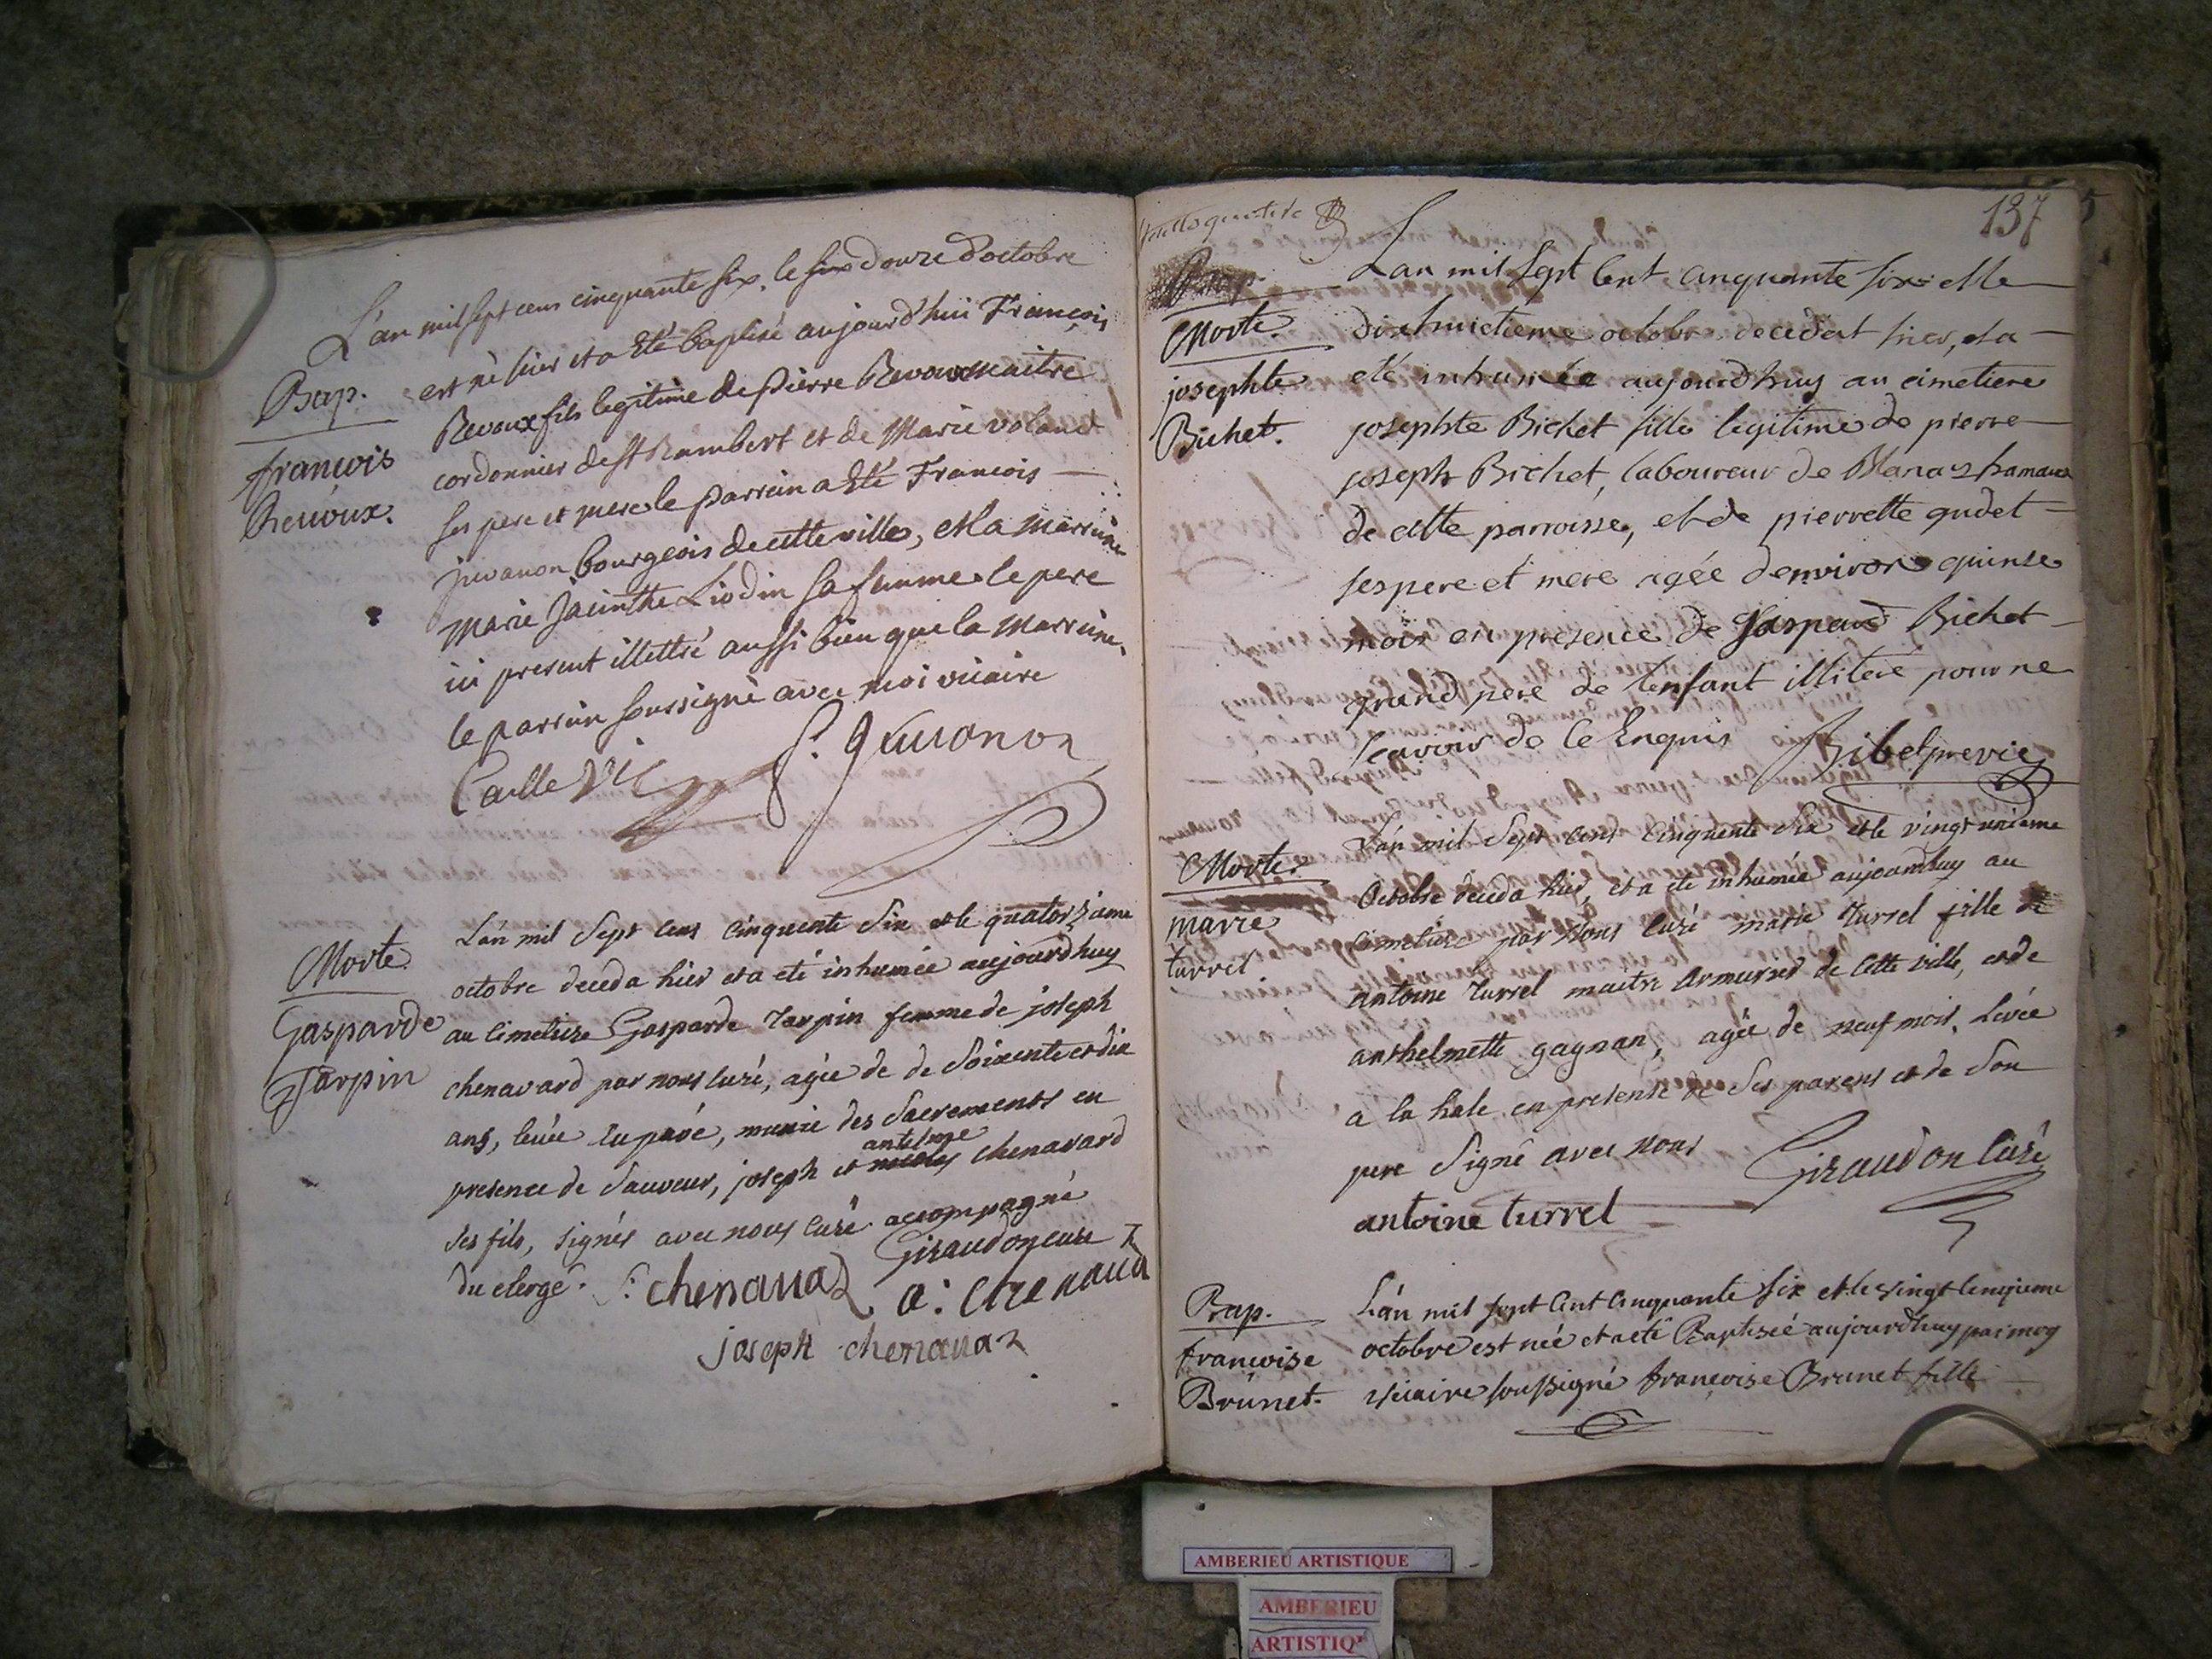 L'an mil sept cens cinquante six, le six douze d'octobre
Bap.
est né hier et a Eté baptisé aujourd'hui François
françois
Revoux.
Revoux fils legitime de Pierre Revoux maitre
cordonnier de St Rambert et de Marie voland
ses pere et mere le parrein a Eté Francois
juvanon bourgeois de cette ville, et la marreine
Marie Jacinthe Liodin sa femme le pere
ici present illettré aussi bien que la marreine,
le parrein soussigné avec moi vicaire
Caille Vic
f. Juuanon
Morte
Gasparde
Tarpin
L'an mil Sept Cens Cinquente Six et le quatorziame
octobre deceda hier et a eté inhumée aujourdhuy
au Cimetiere Gasparde Tarpin femme de joseph
chenavard par nous Curé, agée de de Soixente et dix
ans, levée au pavé, munie des Sacrements en
antelme
presence de Sauveur, joseph et chenavard
Ses fils, signés avec nous Curé accompagné
du clergé.
Giraudon curé
S: chenauaz
a: chenauaz
joseph chenauaz
137
5
Bap.
Morte
josephte
Bichet.
L'an mil sept Cent cinquante six et le
dixhuictieme octobre decedat hier, et a
eté inhumée aujourdhuy au cimetiere
josephte Bichet fille legitime de pierre
joseph Bichet, laboureur de Blanaz hamaux
de cette parroisse, et de pierrette gudet
ses pere et mere agée denviron quinse
mois en presence de Gaspard Bichet
grand pere de lenfant illiteré pour ne
scavoir de ce Enquis
Bibet pre vic
Morte
marie
turrel
L'an mil Sept Cens Cinquente Six et le vingt uniame
Octobre deceda hier, et a eté inhumée aujourdhuy au
Cimetiere par Nous Curé marie turrel fille de
antoine turrel maitre Armurier de Cette ville, et de
anthelmette gagnan, agée de neuf mois, Levée
a la hale en presence de Ses parens et de Son
pere Signé avec nous
Giraudon Curé
antoine turrel
Bap.
francoise
Brunet.
L'an mil sept Cent Cinquante Six et le vingt Cinqieme
octobre est née et a eté Baptisée aujourdhuy par moy
vicaire soussigné françoise Brunet fille
AMBERIEU ARTISTIQUE
AMBERIEU
ARTISTIQ